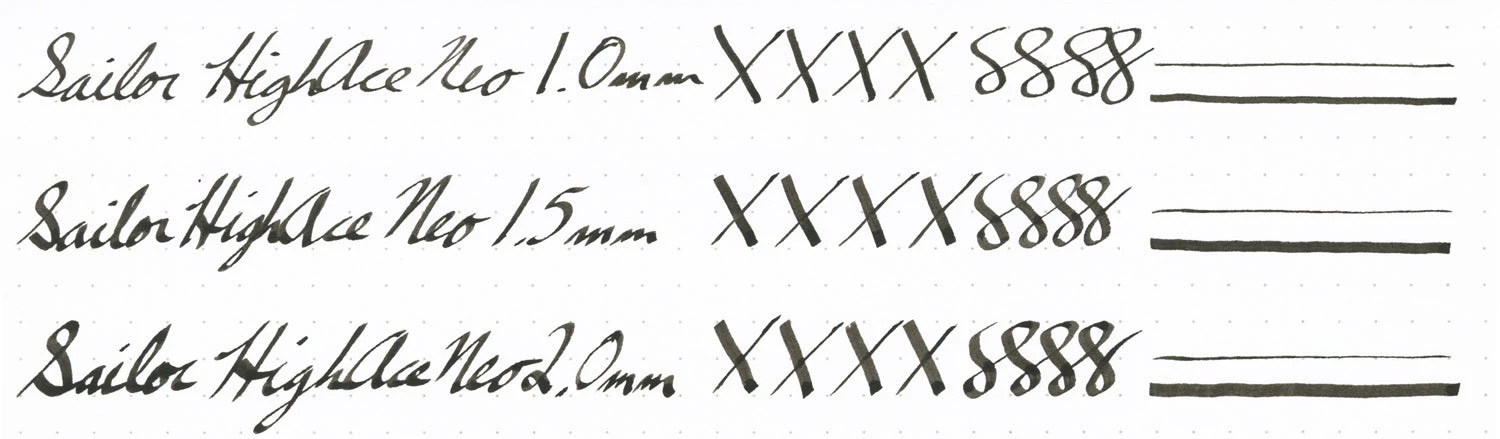 Sailor HighAce Neo 1.0mm XXXX 8888
Sailor HighAce Neo 1.5mm XXXX 8888
Sailor HighAce Neo 2.0mm XXXX 8888